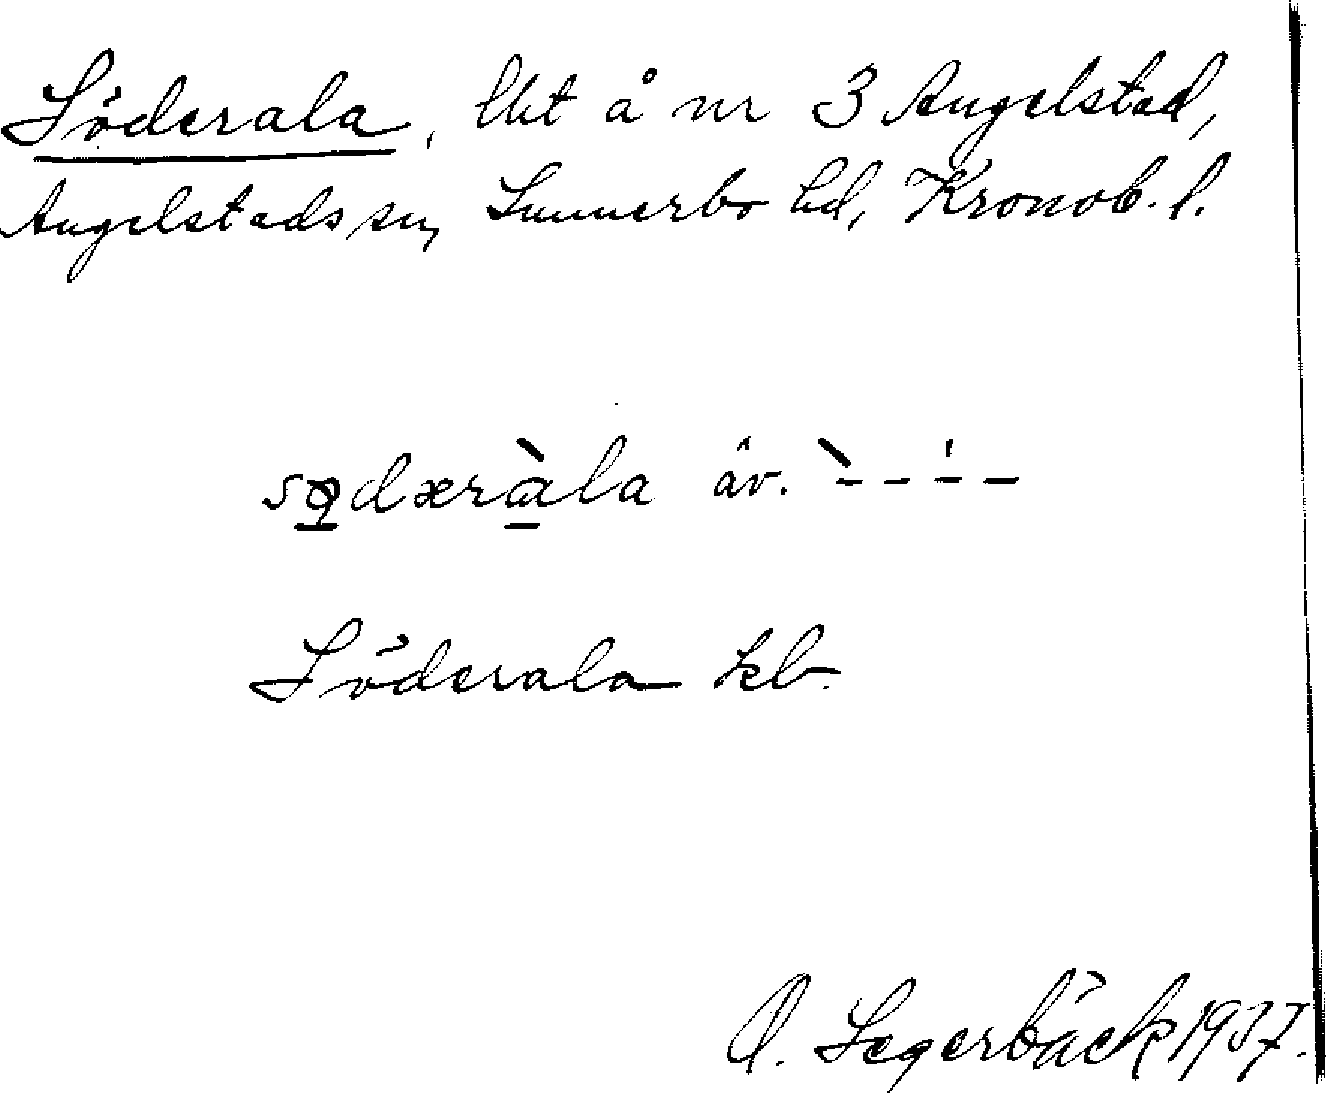 Söderala, lht å nr 3 Angelstad,
Angelstads sn, Sunnerbo hd, Kronob. l.
sødæràla äv. `--'--
Söderala kb.
O. Segerbäck 1937.